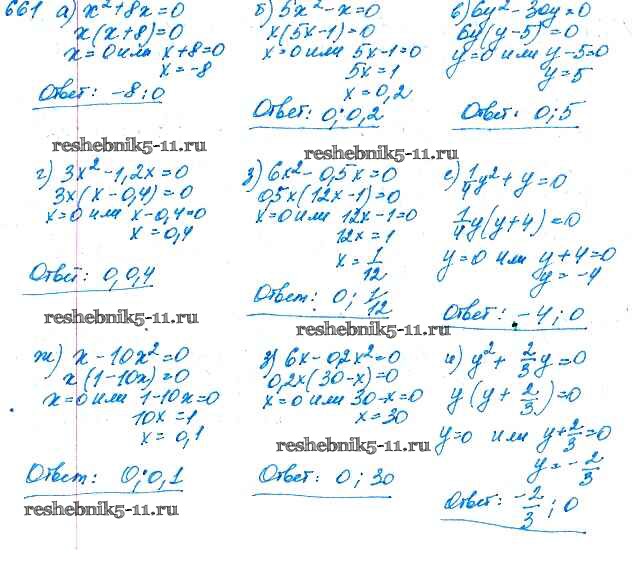 661 а) x²+8x=0
x(x+8)=0
x=0 или x+8=0
x=-8
Ответ: -8; 0
б) 5x²-x=0
x(5x-1)=0
x=0 или 5x-1=0
5x=1
x=0,2
Ответ: 0; 0,2
в) 6y²-30y=0
6y(y-5)=0
y=0 или y-5=0
y=5
Ответ: 0; 5
reshebnik5-11.ru
reshebnik5-11.ru
г) 3x²-1,2x=0
3x(x-0,4)=0
x=0 или x-0,4=0
x=0,4
Ответ: 0, 0,4
reshebnik5-11.ru
д) 6x²-0,5x=0
0,5x(12x-1)=0
x=0 или 12x-1=0
12x=1
x=1/12
Ответ: 0; 1/12
reshebnik5-11.ru
е) 1/4y²+y=0
1/4y(y+4)=0
y=0 или y+4=0
y=-4
Ответ: -4; 0
ж) x-10x²=0
x(1-10x)=0
x=0 или 1-10x=0
10x=1
x=0,1
Ответ: 0; 0,1
reshebnik5-11.ru
з) 6x-0,2x²=0
0,2x(30-x)=0
x=0 или 30-x=0
x=30
reshebnik5-11.ru
Ответ: 0; 30
и) y²+2/3y=0
y(y+2/3)=0
y=0 или y+2/3=0
y=-2/3
Ответ: -2/3; 0